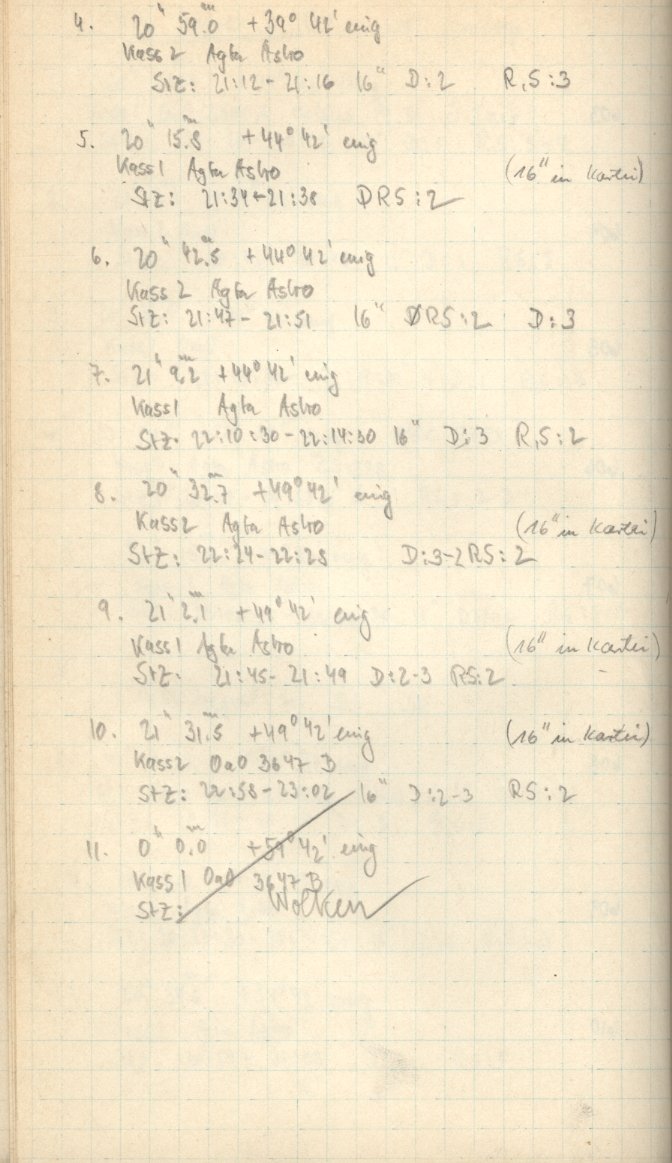 4. 20h 59.m0 +39° 42' eing
Kass 2 Agfa Astro
StZ: 21:12 - 21:16 16" D:2 R,S:3
5. 20h 15.m8 +44° 42' eing
Kass 1 Agfa Astro (16" in Kartei)
StZ: 21:34 - 21:38 DRS:2
6. 20h 42.m5 +44° 42' eing
Kass 2 Agfa Astro
StZ: 21:47 - 21:51 16" RS:2 D:3
7. 21h 9.m2 +44° 42' eing
Kass 1 Agfa Astro
StZ. 22:10:30 - 22:14:30 16" D:3 R,S:2
8. 20h 32.m7 +49° 42' eing
Kass 2 Agfa Astro (16" in Kartei)
StZ: 22:24 - 22:28 D:3-2 RS:2
9. 21h 2.m1 +49° 42' eing
Kass 1 Agfa Astro (16" in Kartei)
StZ. 21:45 - 21:49 D:2-3 RS:2
10. 21h 31.m5 +49° 42' eing (16" in Kartei)
Kass 2 OaO 3647 B
StZ: 22:58 - 23:02 16" D:2-3 RS:2
11. 0h 0.m0 +59° 42' eing
Kass 1 OaO 3647 B
StZ: Wolken